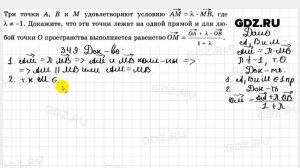 GDZ.RU
Три точки A, B и M удовлетворяют условию AM = λ · MB, где
λ ≠ -1. Докажите, что эти точки лежат на одной прямой и для лю-
бой точки O пространства выполняется равенство OM = (OA + λ · OB) / (1 + λ).
349 Док-во:
1. AM = λ MB => AM и MB
=> AM || MB или AM = MB.
2. т.к. M ∈
Дано:
A, B и M.
AM = λ · MB
λ ≠ -1, O
Док-ть:
1. A, B, M ∈ 1 пр.
2. Док-ть
OM = (OA + λ · OB) / (1 + λ)
GDZ.RU